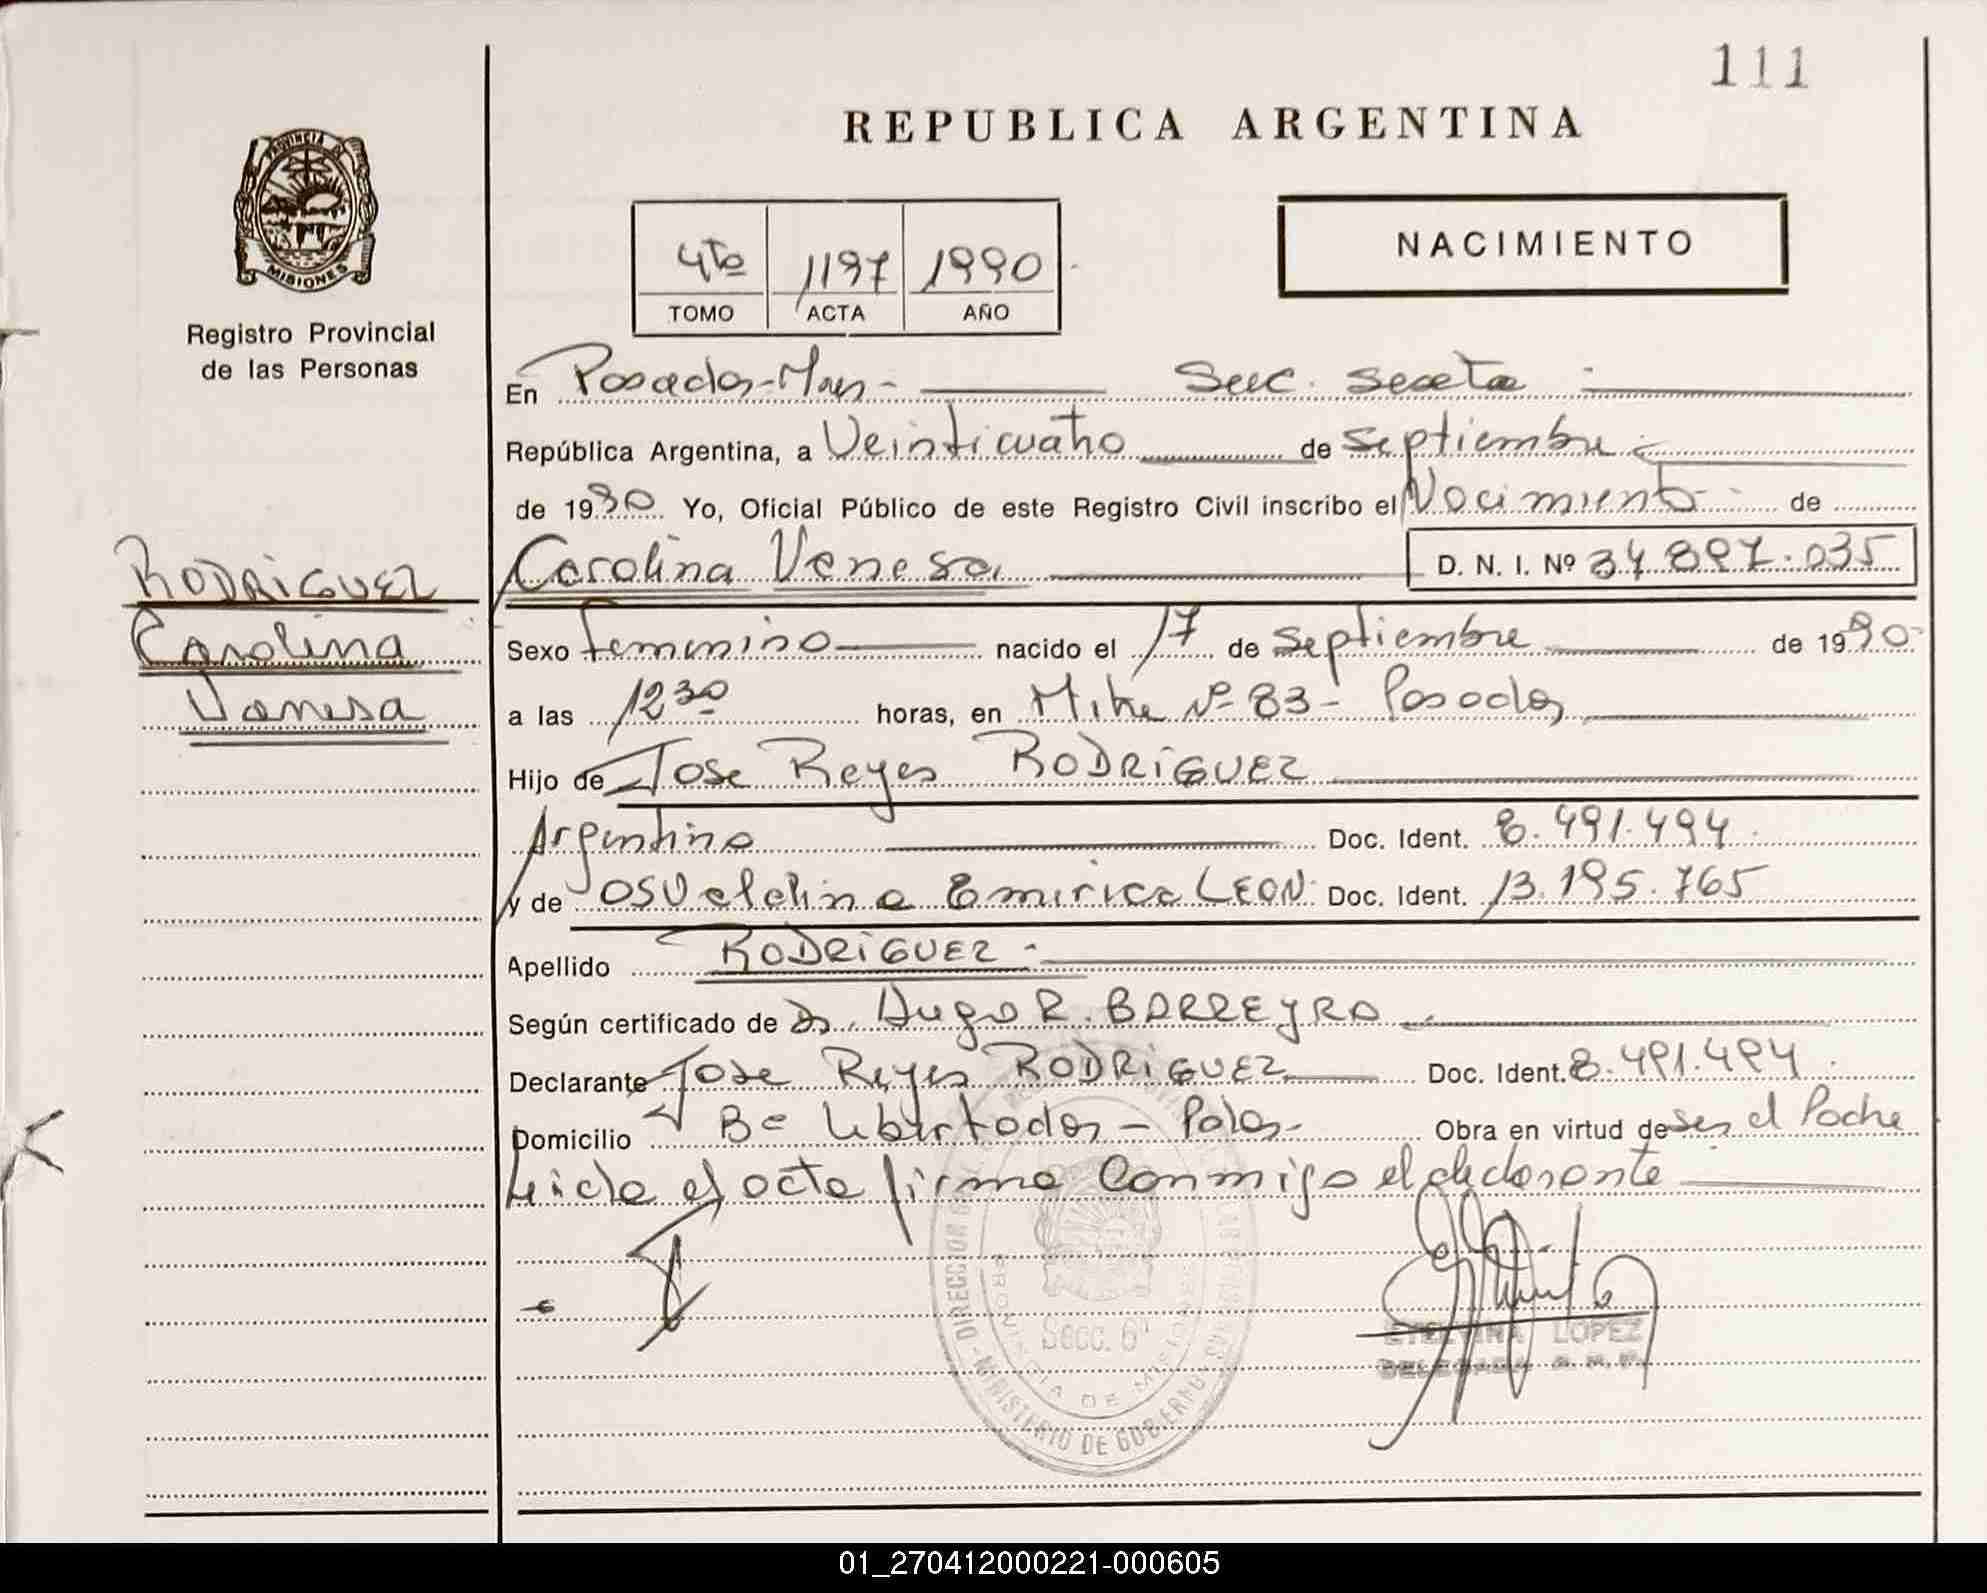 111
REPUBLICA ARGENTINA
PROVINCIA DE
MISIONES
Registro Provincial
de las Personas
4to 1197 1990
TOMO ACTA AÑO
NACIMIENTO
En Posadas-Mnes- Secc. sexta
República Argentina, a Veinticuatro de Septiembre
de 1990 Yo, Oficial Público de este Registro Civil inscribo el Nacimiento de
RODRIGUEZ
Carolina
Vanesa
Carolina Vanesa D. N. I. Nº 34.897.035
Sexo femenino nacido el 17 de Septiembre de 1990
a las 12 30 horas, en Mitre Nº 83- Posadas
Hijo de Jose Reyes RODRIGUEZ
Argentino Doc. Ident. 8.491.494
y de Osvaldina LEON Doc. Ident. 13.195.765
Apellido RODRIGUEZ-
Según certificado de Dr. Hugo R. BARREYRO
Declarante Jose Reyes RODRIGUEZ Doc. Ident. 8.491.494
Domicilio Bº Libertador - Obra en virtud de ser el Padre
Leida el acta firma conmigo el declarante
Secc. 6ª
PROVINCIA DE MISIONES
MINISTERIO DE GOBIERNO
ETELVINA LOPEZ
DELEGADA
01_270412000221-000605